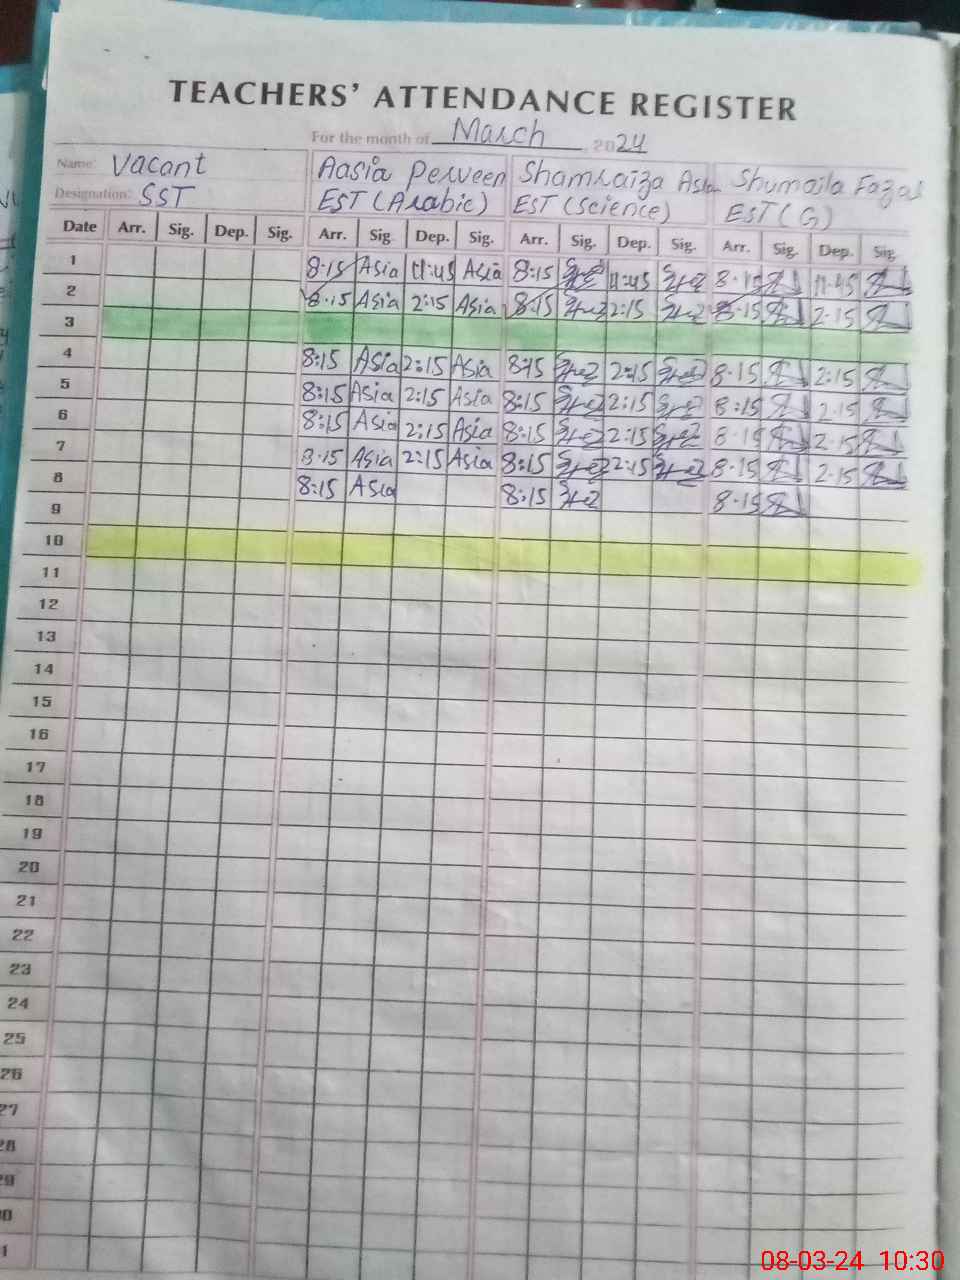 TEACHERS' ATTENDANCE REGISTER
For the month of March, 2024
Name: Vacant Aasia Perveen Shamraiza Aslam Shumaila Fazal
Designation: SST EST (Arabic) EST (Science) EST (G)
Date Arr. Sig. Dep. Sig. Arr. Sig. Dep. Sig. Arr. Sig. Dep. Sig. Arr. Sig. Dep. Sig.
1 8:15 Asia 11:45 Asia 8:15 11:45 8:15 11:45
2 8:15 Asia 2:15 Asia 8:15 2:15 8:15 2:15
3
4 8:15 Asia 2:15 Asia 8:15 2:15 8:15 2:15
5 8:15 Asia 2:15 Asia 8:15 2:15 8:15 2:15
6 8:15 Asia 2:15 Asia 8:15 2:15 8:15 2:15
7 8:15 Asia 2:15 Asia 8:15 2:15 8:15 2:15
8 8:15 Asia 8:15 8:15
9
10
11
12
13
14
15
16
17
18
19
20
21
22
23
24
25
26
27
28
29
30
31
08-03-24 10:30